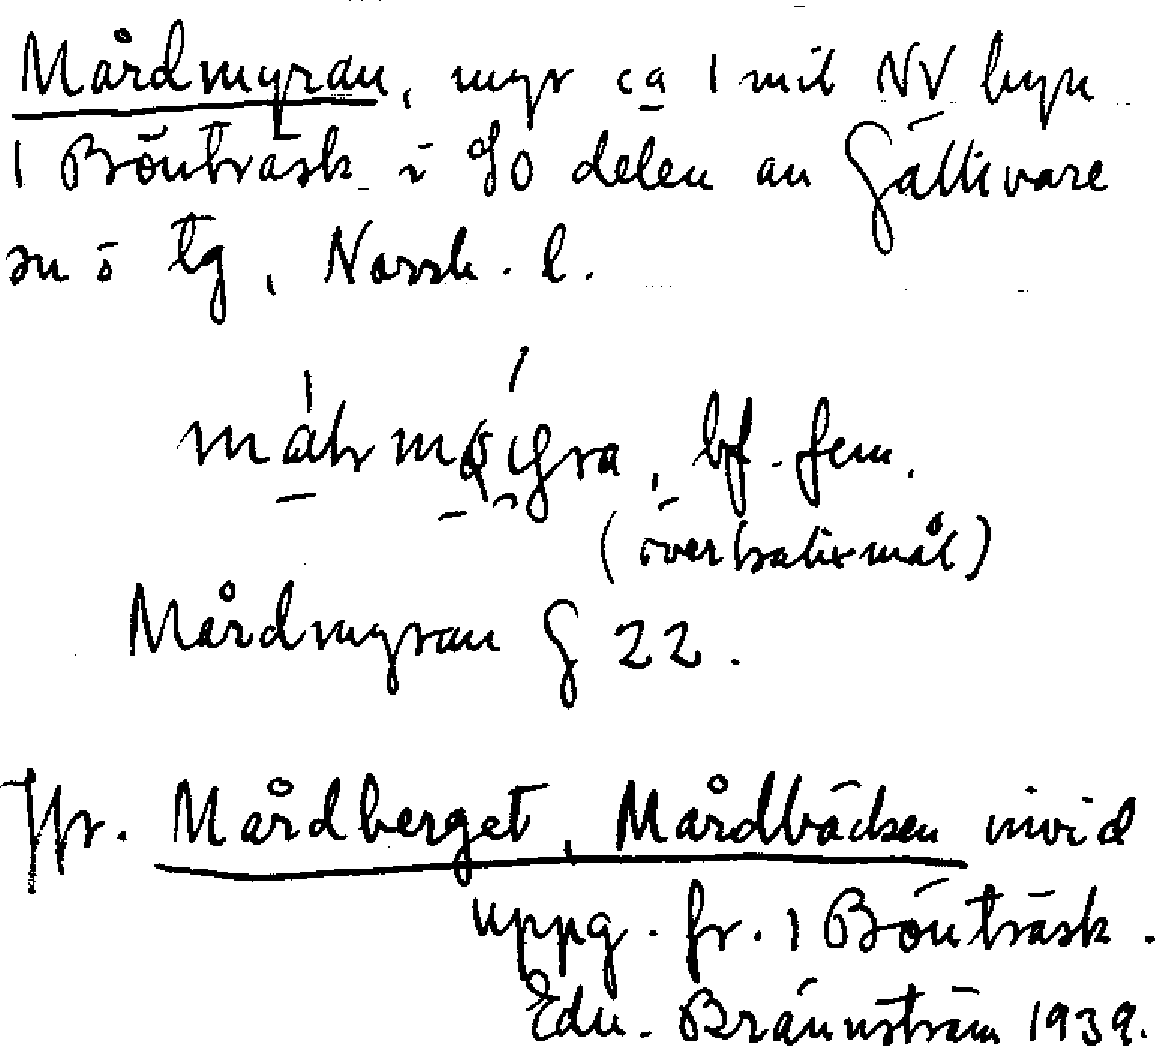 Mårdmyran, myr ca 1 mil NV byn
1 Bönträsk i SO delen av Gällivare
sn o tg, Norrb. l.
bf. fem.
(överkalixmål)
Mårdmyran § 22.
Jfr. Mårdberget, Mårdbäcken invid
uppg. fr. 1 Bönträsk.
Edv. Brännström 1939.